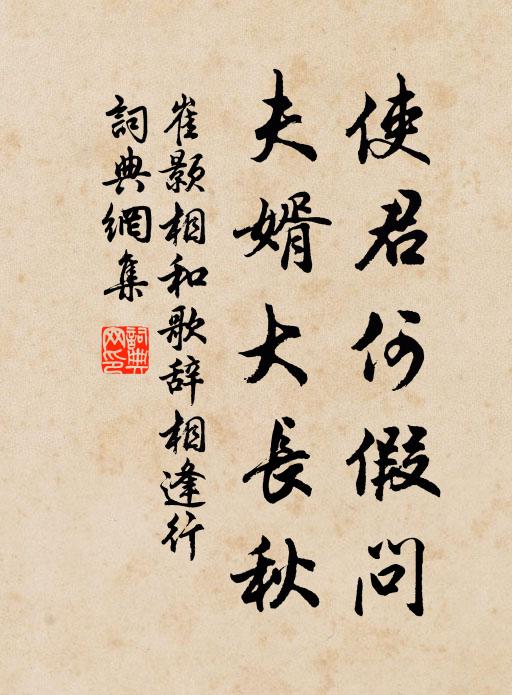 使君何假問
夫婿大長秋
崔顥相和歌辞相逢行
詞典網集
詞典
网印